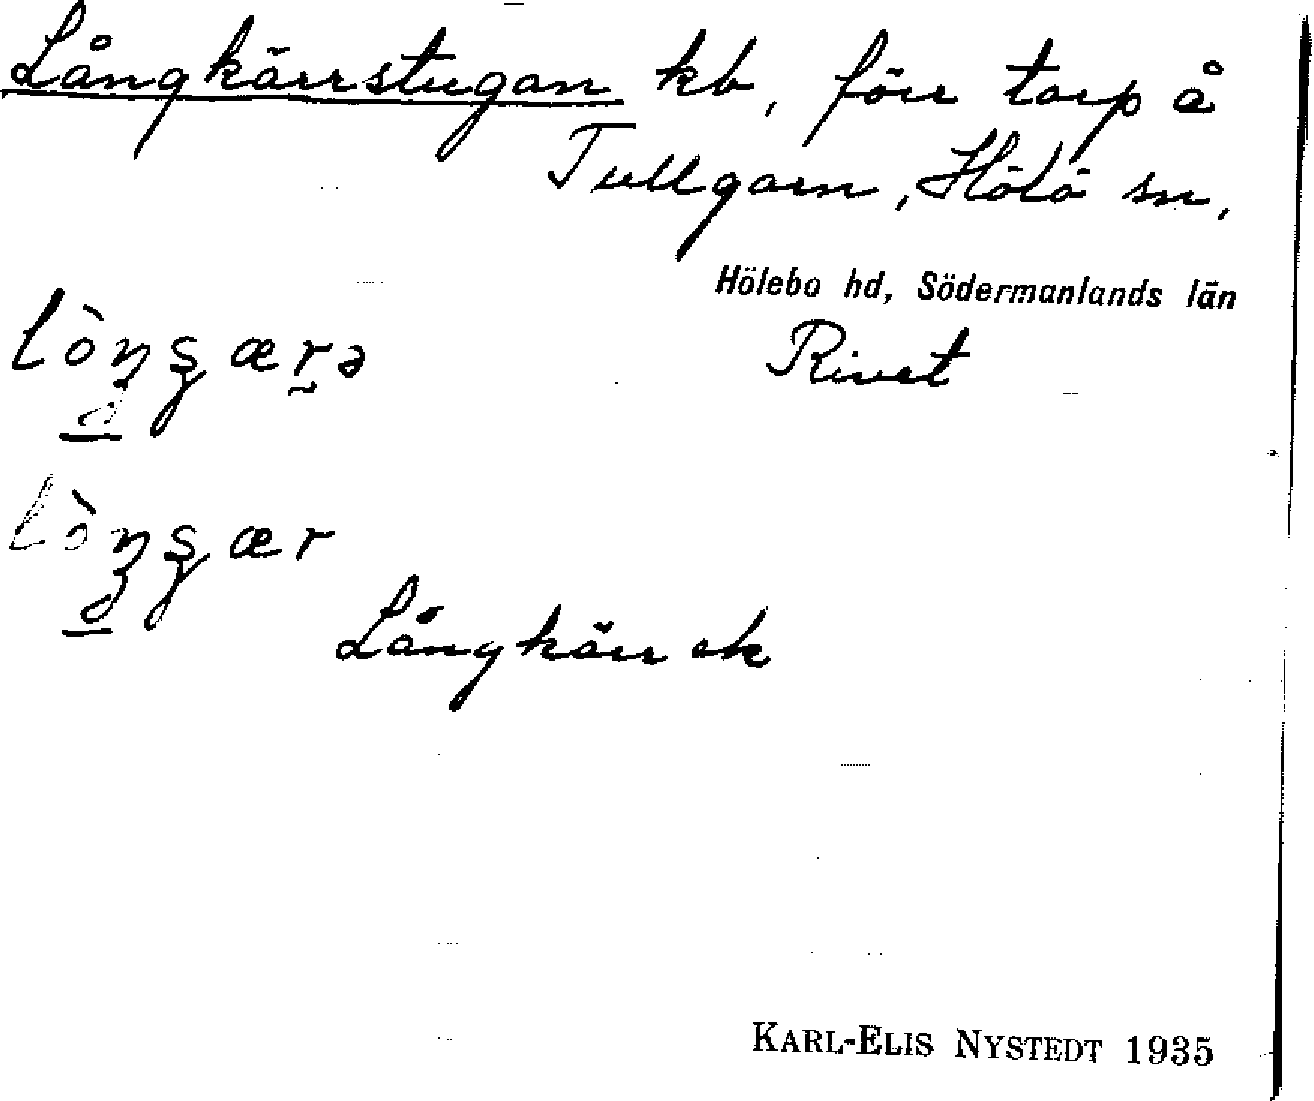 Långkärrstugan kb, förr torp å
Tullgarn, Hölö sn,
Hölebo hd, Södermanlands län
Rivet
Långkärr ek
KARL-ELIS NYSTEDT 1935